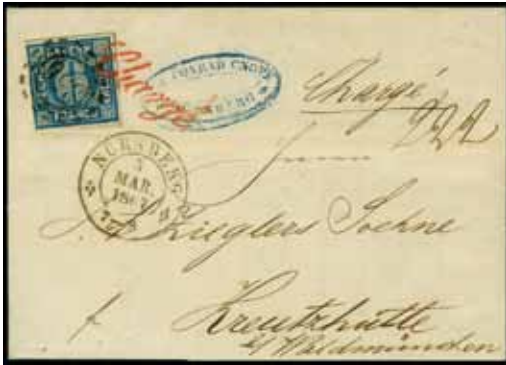 Chargé
CONRAD CNOPF
NÜRNBERG
Chargé
222
NÜRNBERG
MAR.
Zieglers Soehne
Kreutzhütte
b/ Waldmünchen